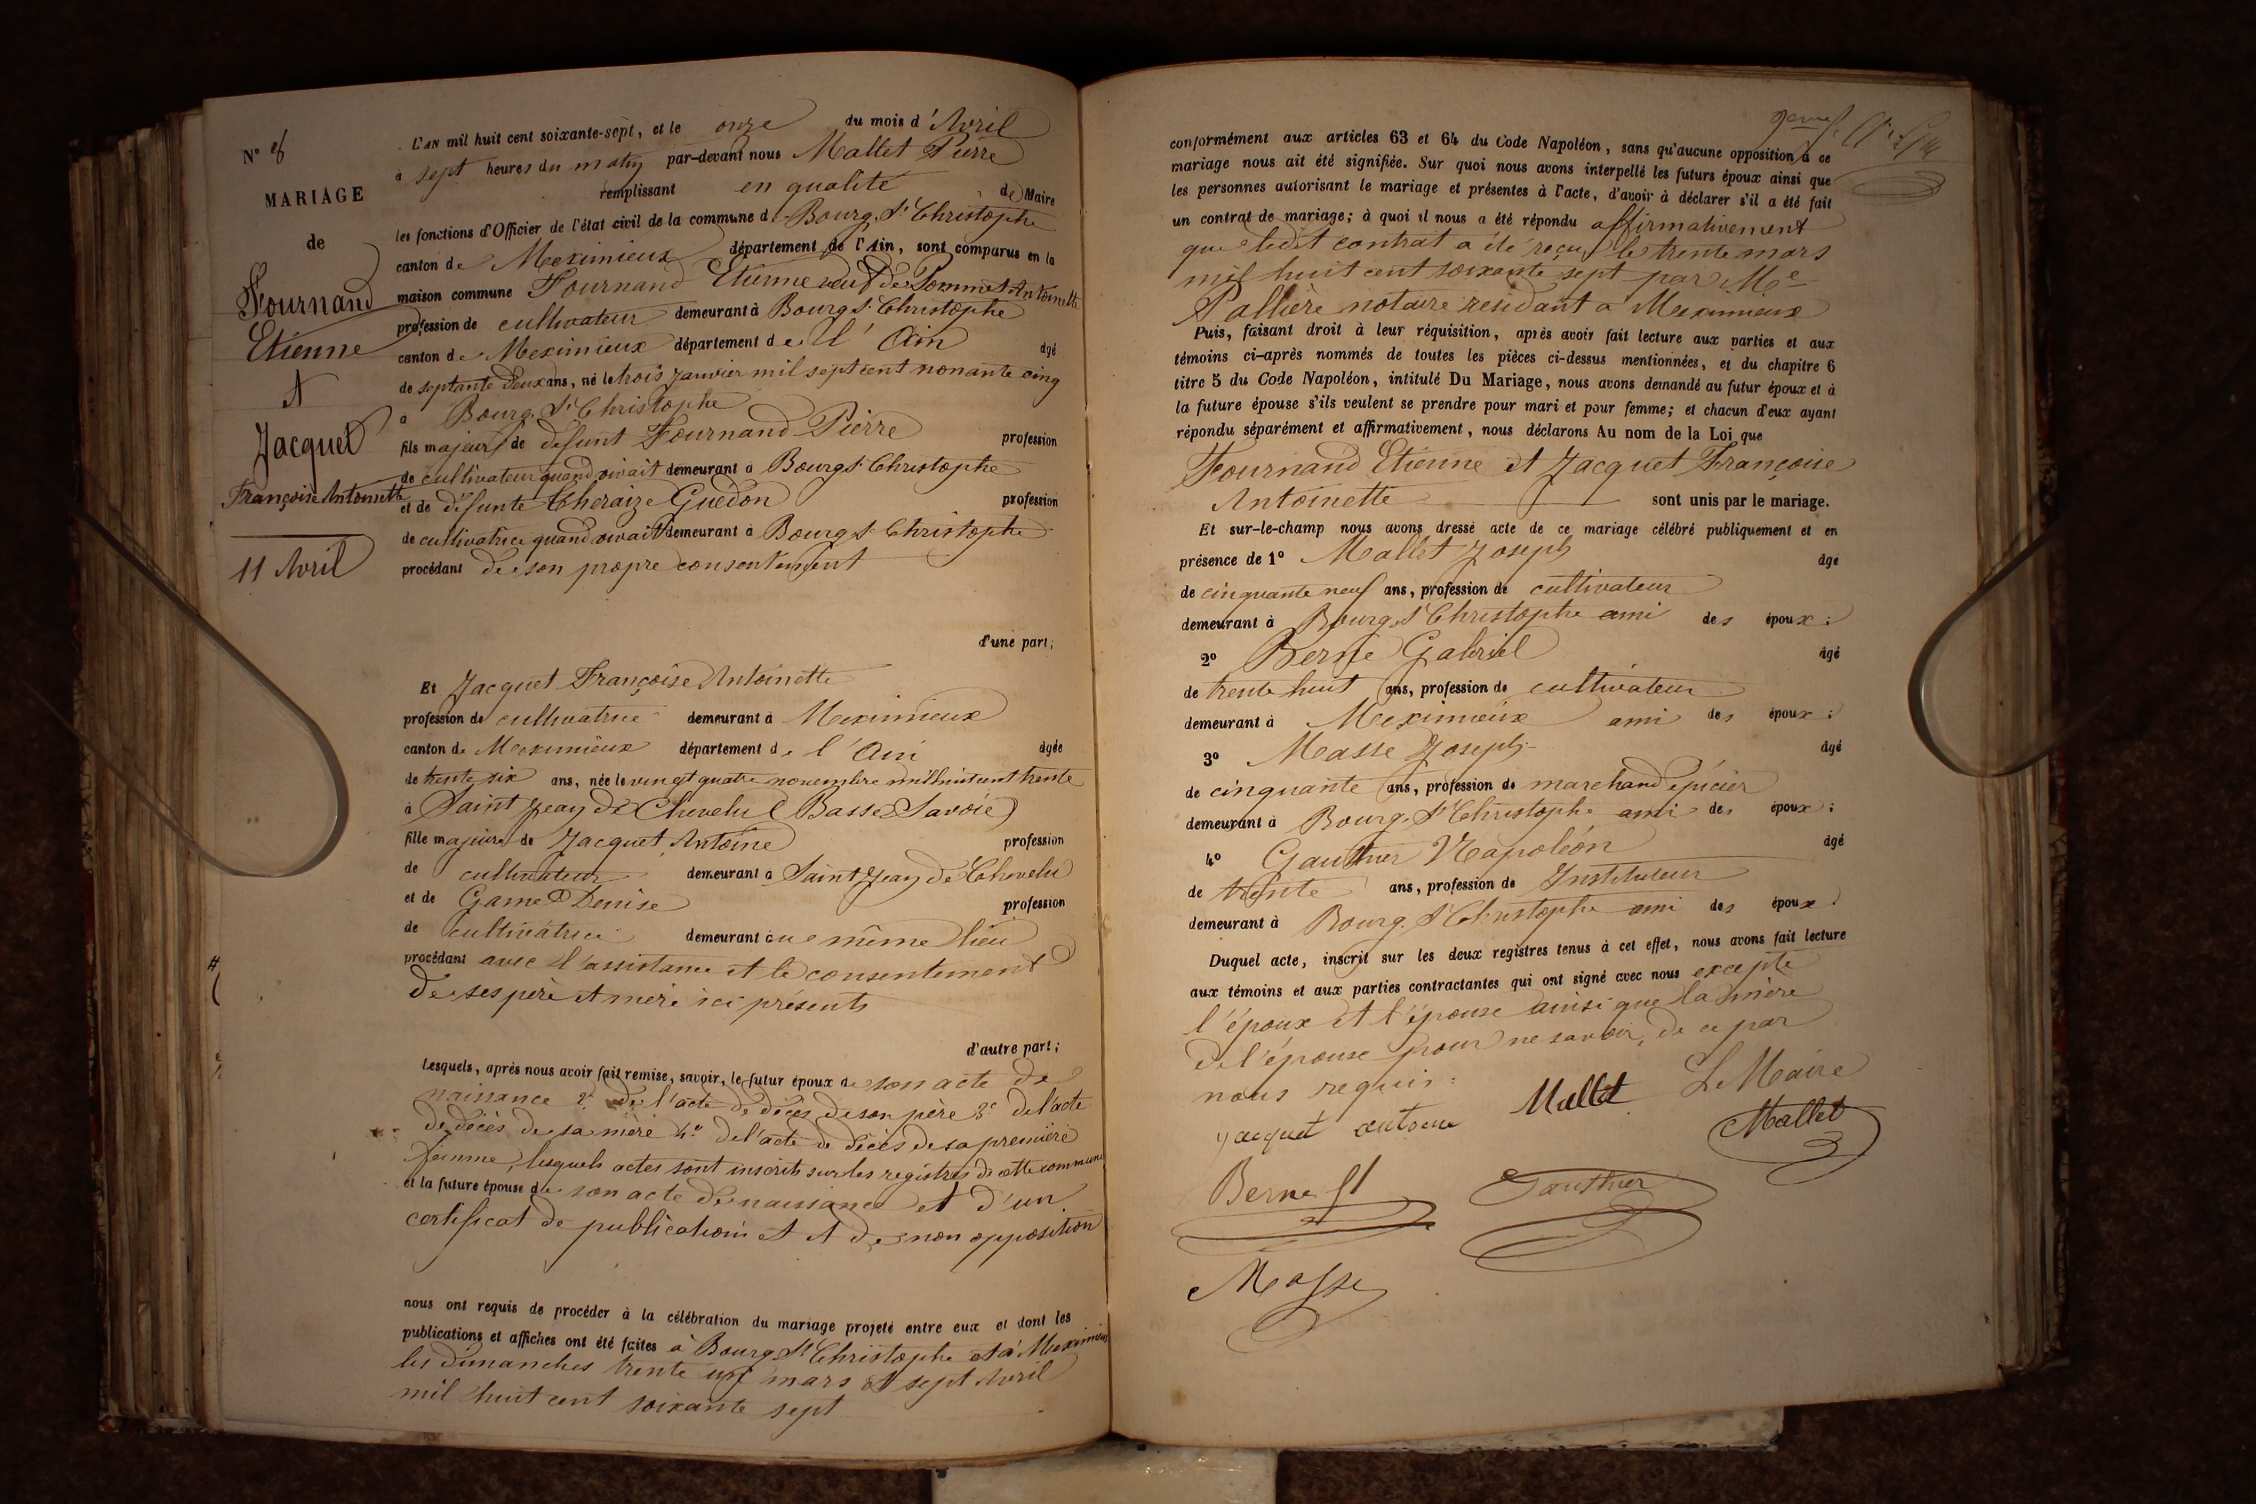 N° 8
MARIAGE
de
Fournand
Etienne
Et
Jacquet
Françoise Antoinette
11 Avril
L'AN mil huit cent soixante-sept, et le onze du mois d'Avril
à sept heures du matin par-devant nous Mallet Pierre
remplissant en qualité de Maire
les fonctions d'Officier de l'état civil de la commune de Bourg St Christophe
canton de Meximieux département de l'Ain, sont comparus en la
maison commune Fournand Etienne veuf de Pommet Antoinette
profession de cultivateur demeurant à Bourg St Christophe
canton de Meximieux département de l'Ain âgé
de septante deux ans, né le trois janvier mil sept cent nonante cinq
à Bourg St Christophe
fils majeur de défunt Fournand Pierre profession
de cultivateur quand vivait demeurant à Bourg St Christophe
et de défunte Theraize Guedon profession
de cultivatrice quand vivait demeurant à Bourg St Christophe
procédant de son propre consentement
d'une part;
Et Jacquet Françoise Antoinette
profession de cultivatrice demeurant à Meximieux
canton de Meximieux département de l'Ain âgée
de trente six ans, née le vingt quatre novembre mil huit cent trente
à Saint Jean de Chevelu (Basse Savoie)
fille majeure de Jacquet Antoine profession
de cultivateur demeurant à Saint Jean de Chevelu
et de Game Denise profession
de cultivatrice demeurant au même lieu
procédant avec l'assistance et le consentement
de ses père et mère ici présents
d'autre part;
Lesquels, après nous avoir fait remise, savoir, le futur époux de son acte de
naissance 2° de l'acte de décès de son père 3° de l'acte
de décès de sa mère 4° de l'acte de décès de sa première
femme, lesquels actes sont inscrits sur les registres de cette commune
et la future épouse de son acte de naissance et d'un
certificat de publications et et de non opposition
nous ont requis de procéder à la célébration du mariage projeté entre eux et dont les
publications et affiches ont été faites à Bourg St Christophe et à Meximieux
les dimanches trente un mars et sept Avril
mil huit cent soixante sept
conformément aux articles 63 et 64 du Code Napoléon, sans qu'aucune opposition à ce
mariage nous ait été signifiée. Sur quoi nous avons interpellé les futurs époux ainsi que
les personnes autorisant le mariage et présentes à l'acte, d'avoir à déclarer s'il a été fait
un contrat de mariage; à quoi il nous a été répondu affirmativement
que ledit contrat a été reçu le trente mars
mil huit cent soixante sept par Me
Pallière notaire résidant à Meximieux
Puis, faisant droit à leur réquisition, après avoir fait lecture aux parties et aux
témoins ci-après nommés de toutes les pièces ci-dessus mentionnées, et du chapitre 6
titre 5 du Code Napoléon, intitulé Du Mariage, nous avons demandé au futur époux et à
la future épouse s'ils veulent se prendre pour mari et pour femme; et chacun d'eux ayant
répondu séparément et affirmativement, nous déclarons Au nom de la Loi que
Fournand Etienne et Jacquet Françoise
Antoinette sont unis par le mariage.
Et sur-le-champ nous avons dressé acte de ce mariage célébré publiquement et en
présence de 1° Mallet Joseph âgé
de cinquante neuf ans, profession de cultivateur
demeurant à Bourg St Christophe ami des époux;
2° Berne Gabriel âgé
de trente huit ans, profession de cultivateur
demeurant à Meximieux ami des époux;
3° Masse Joseph âgé
de cinquante ans, profession de marchand épicier
demeurant à Bourg St Christophe ami des époux;
4° Gauthier Napoléon âgé
de trente ans, profession de Instituteur
demeurant à Bourg St Christophe ami des époux.
Duquel acte, inscrit sur les deux registres tenus à cet effet, nous avons fait lecture
aux témoins et aux parties contractantes qui ont signé avec nous excepté
l'époux et l'épouse ainsi que la mère
de l'épouse pour ne savoir, de ce par
nous requis.
Jacquet antoine Mallet Le Maire
Mallet
Berne Gauthier
Masse